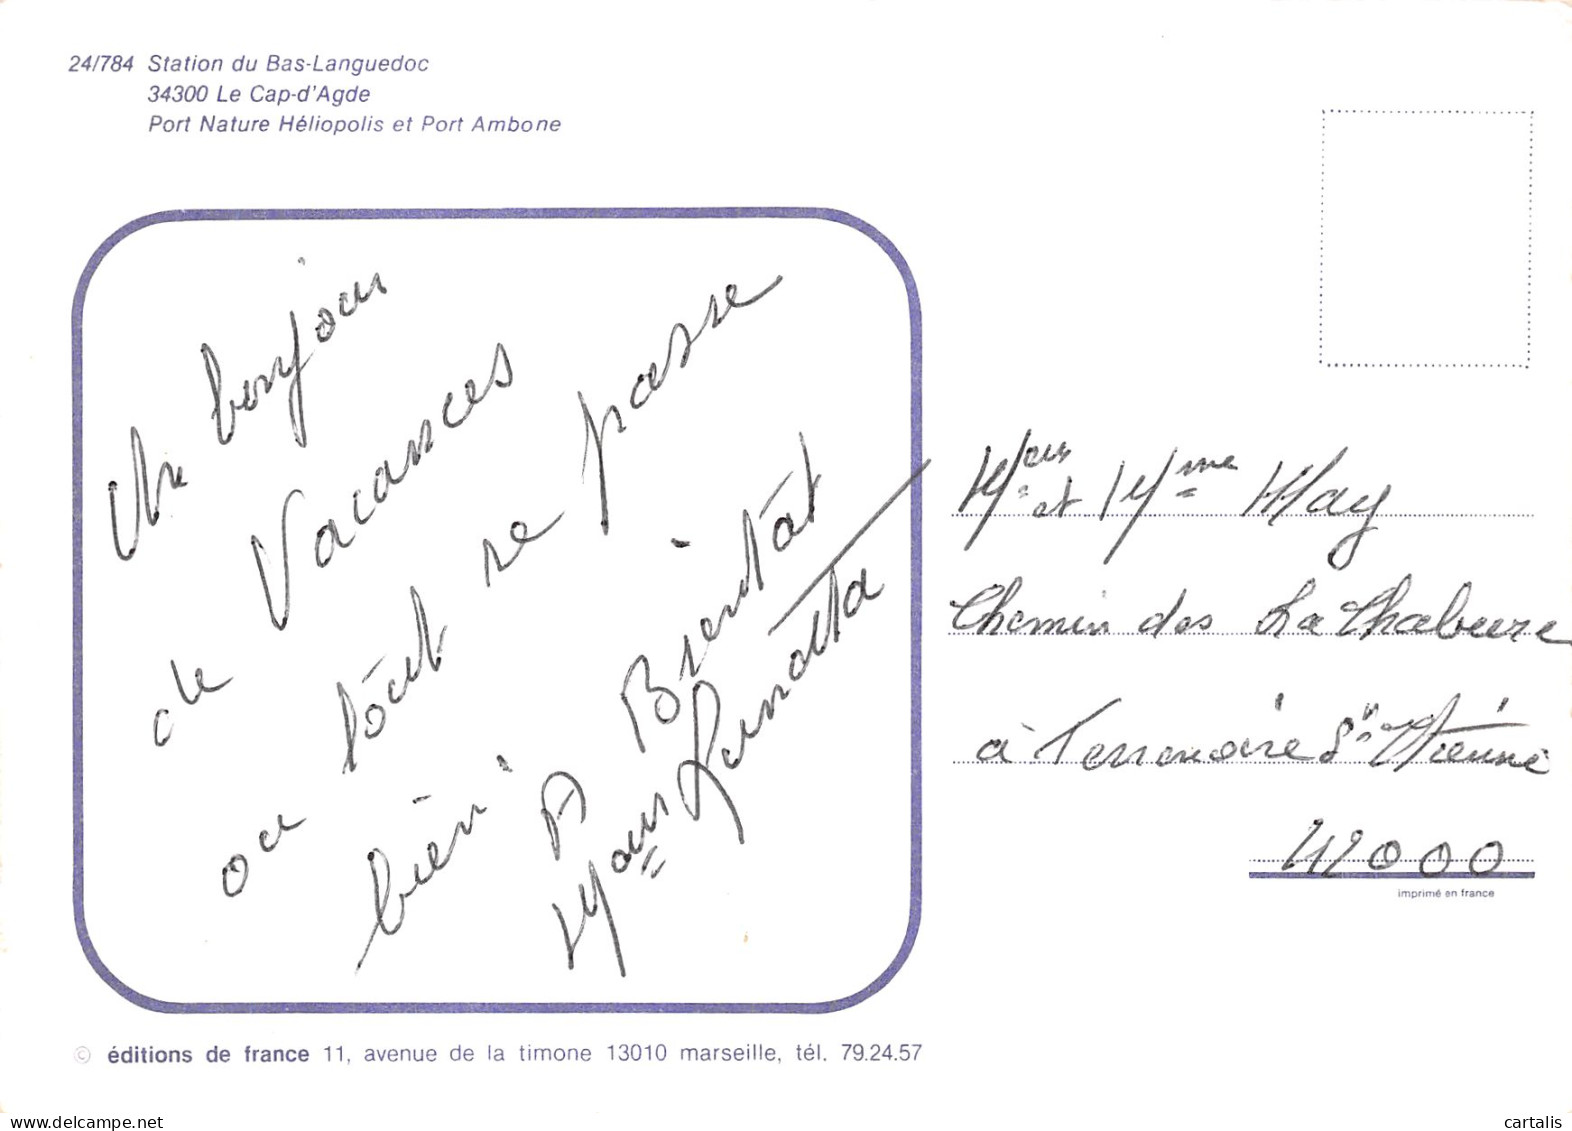 24/784 Station du Bas-Languedoc
34300 Le Cap-d'Agde
Port Nature Héliopolis et Port Ambone
Un bonjour
de Vacances
ou tout se passe
bien A Bientôt
Mous
Mous et Mme May
Chemin des La Chabure
à Terrenoire St Etienne
42000
imprimé en france
© éditions de france 11, avenue de la timone 13010 marseille, tél. 79.24.57
cartalis